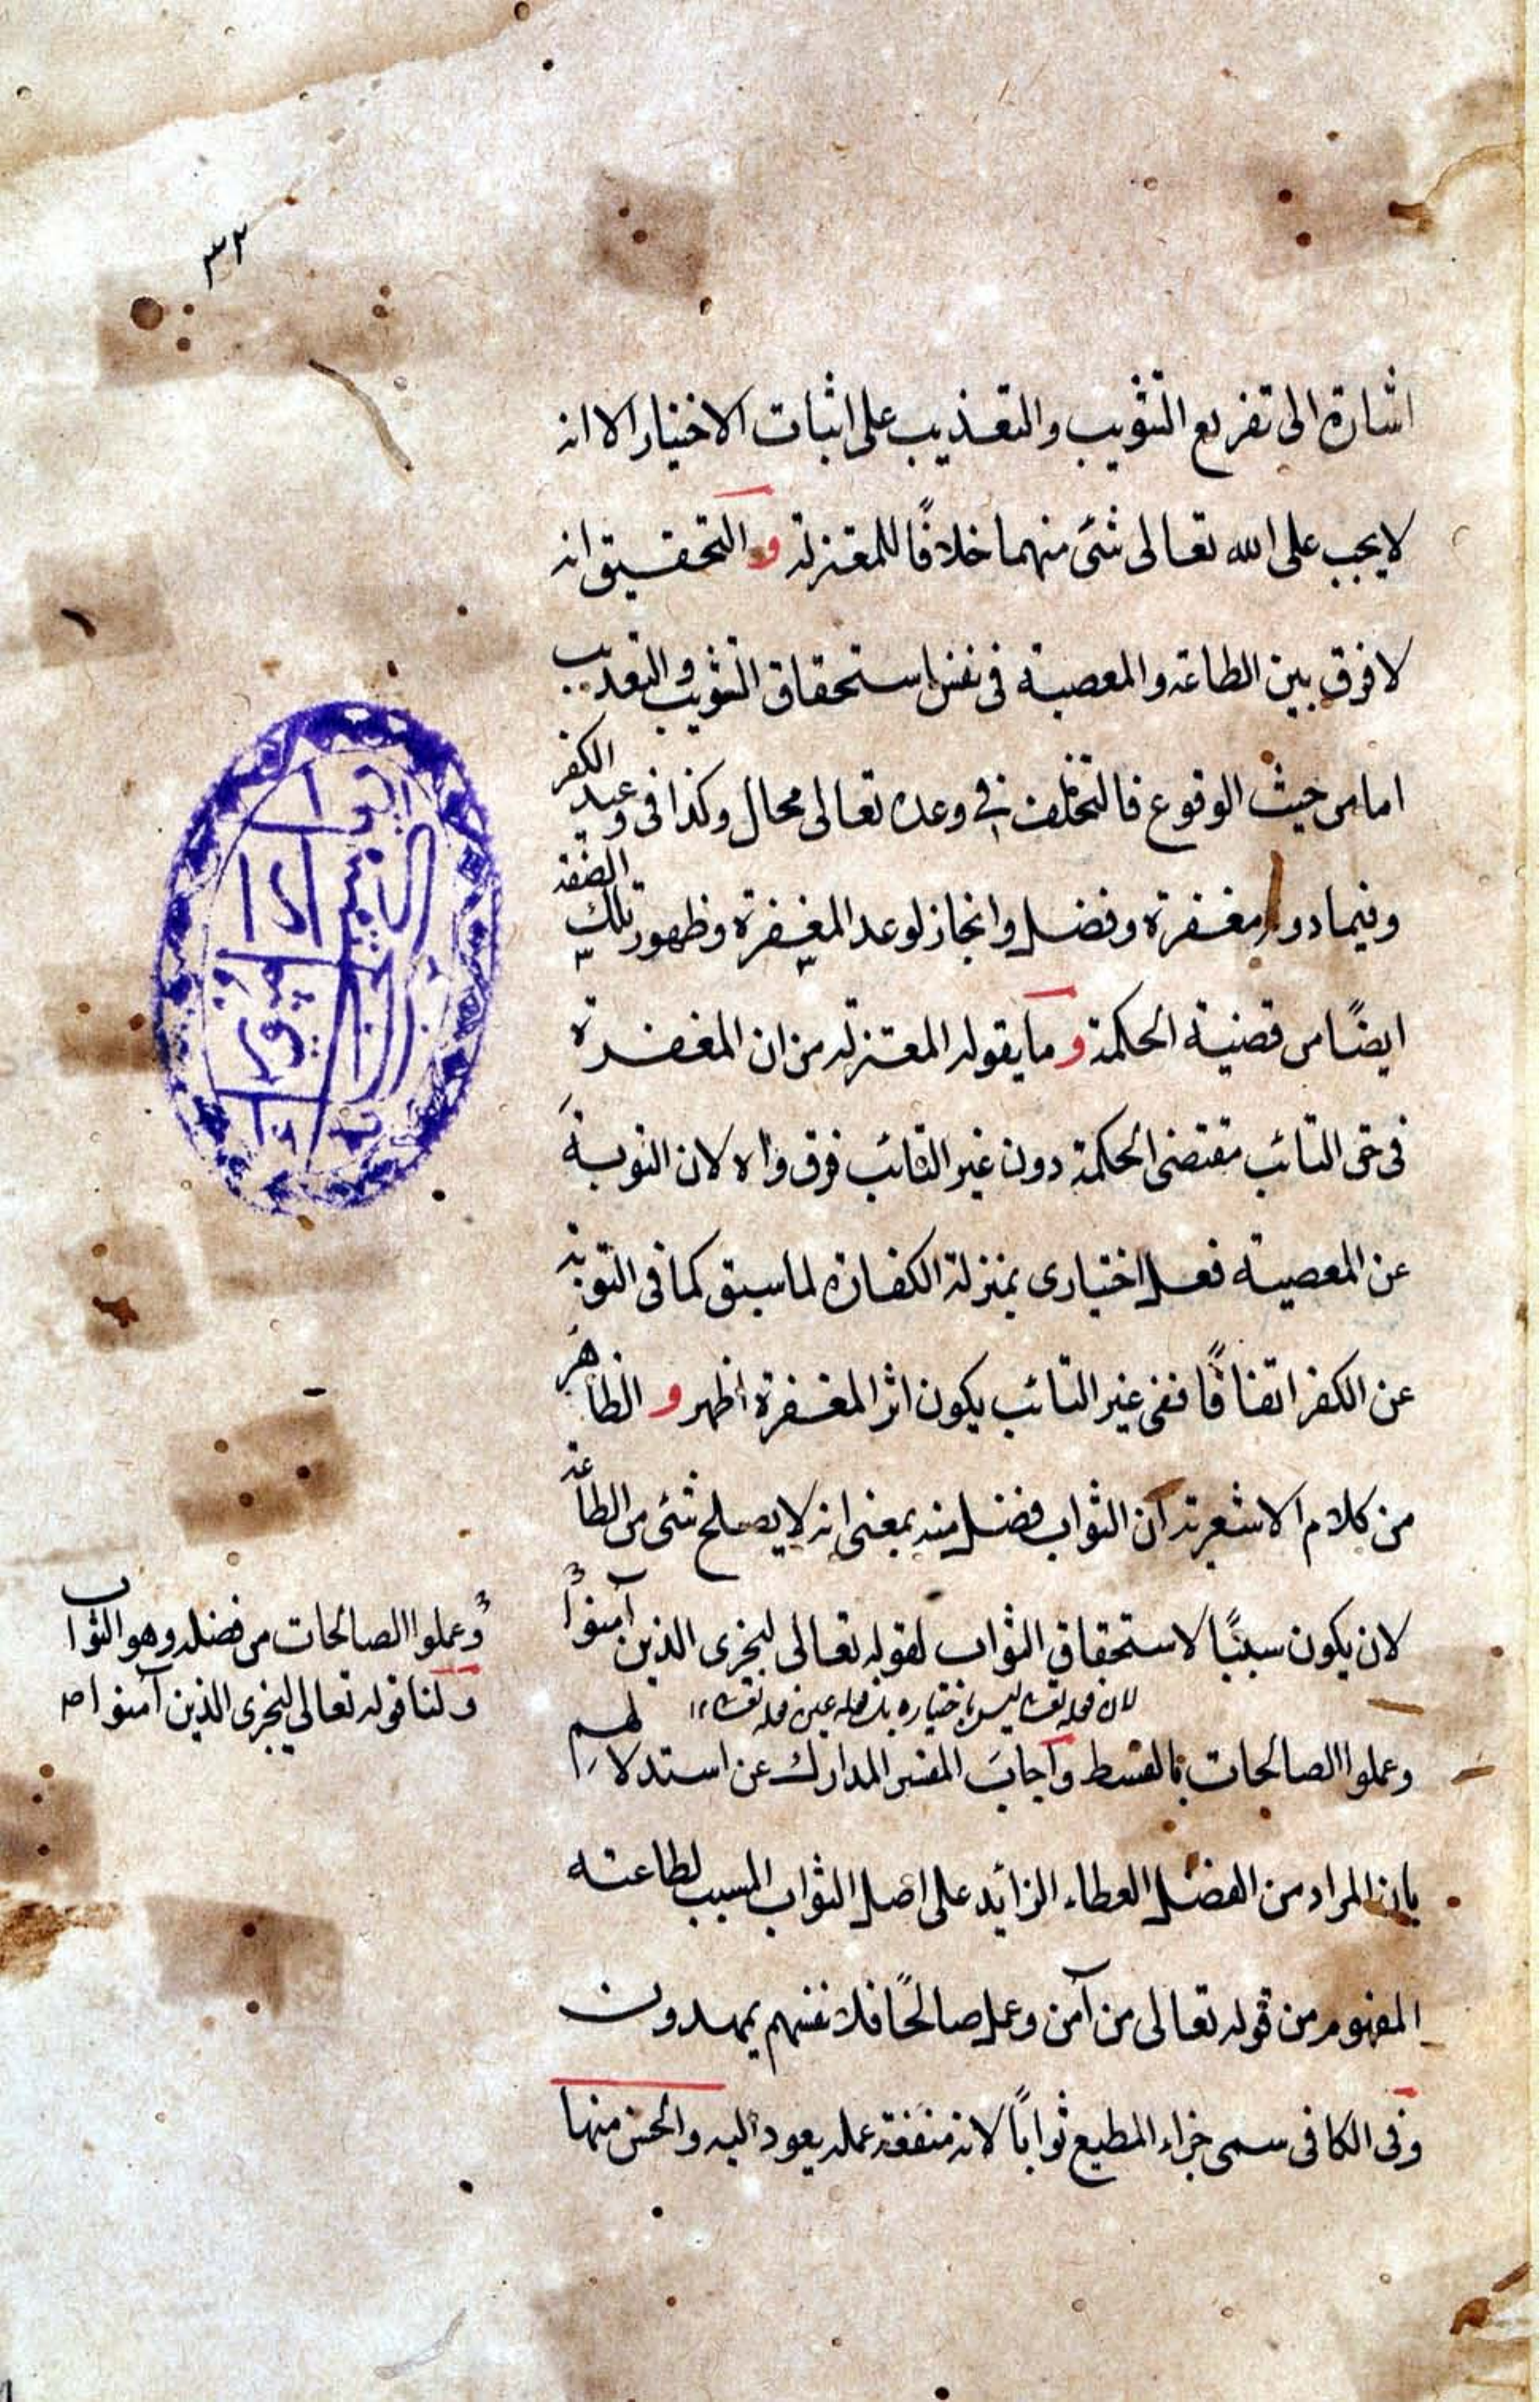 ٣٢
اشارة الى تفريع التثويب والتعذيب على اثبات الاختيار الا انه
لا يجب على الله تعالى شئ منهما خلافًا للمعتزلة و التحقيق انه
لا فرق بين الطاعة والمعصية فى نفس استحقاق التثويب والتعذيب
اما من حيث الوقوع فالتخلف فى وعده تعالى محال وكذا فى وعيد الكفر
وفيما دونه مغفرة وفضل وانجاز لوعد المغفرة وظهور تلك الصفة
ايضًا من قضية الحكمة و ما يقوله المعتزلة من ان المغفرة
فى حق التائب مقتضى الحكمة دون غير التائب فرق واه لان التوبة
عن المعصية فعل اختيارى بمنزلة الكفارة لما سبق كما فى التوبة
عن الكفر اتفاقًا ففى غير التائب يكون اثر المغفرة اظهر و الظاهر
من كلام الاشعرية ان الثواب فضل منه بمعنى انه لا يصلح شئ من الطاعة
لان يكون سببًا لاستحقاق الثواب لقوله تعالى ليجزى الذين آمنوا
وعملوا الصالحات من فضله وهو الثواب
ولنا قوله تعالى ليجزى الذين آمنوا صح
وعملوا الصالحات بالقسط وأجاب المفسر المدارك عن استدلالهم
بان المراد من الفضل العطاء الزائد على اصل الثواب المسبب لطاعته
المفهوم من قوله تعالى من آمن وعمل صالحًا فلانفسهم يمهدون
وفى الكافى سمى جزاء المطيع ثوابًا لانه منفعة عمله يعود اليه والحسن منها